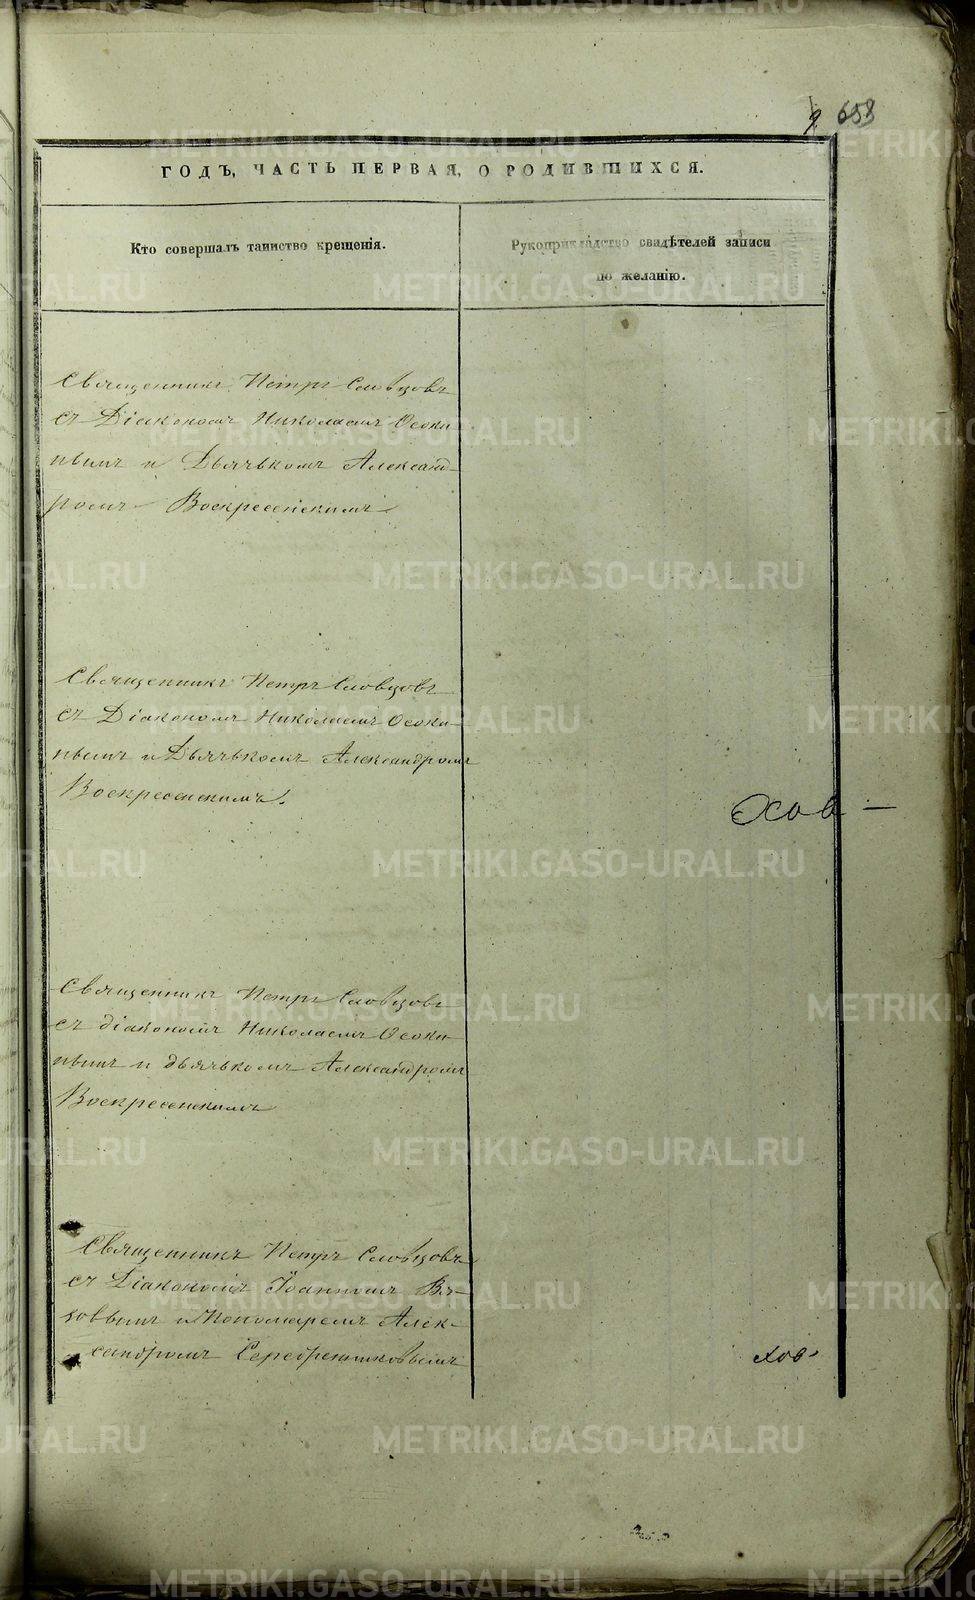 9 658
ГОДЪ, ЧАСТЬ ПЕРВАЯ, О РОДИВШИХСЯ.
Кто совершалъ таинство крещенія.
Рукоприкладство свидѣтелей записи
по желанію.
Священникъ Петръ Словцовъ
съ Діакономъ Николаемъ Осоки-
нымъ и Дьячькомъ Александ-
ромъ Воскресенскимъ
Священникъ Петръ Словцовъ
съ Діакономъ Николаемъ Осоки-
нымъ и Дьячькомъ Александромъ
Воскресенскимъ.
Священникъ Петръ Словцовъ
съ діакономъ Николаемъ Осоки-
нымъ и дьячькомъ Александромъ
Воскресенскимъ
Священникъ Петръ Словцовъ
съ Діакономъ Іоанномъ Вя-
зовымъ и Пономаремъ Алек-
сандромъ Серебренниковымъ
METRIKI.GASO-URAL.RU